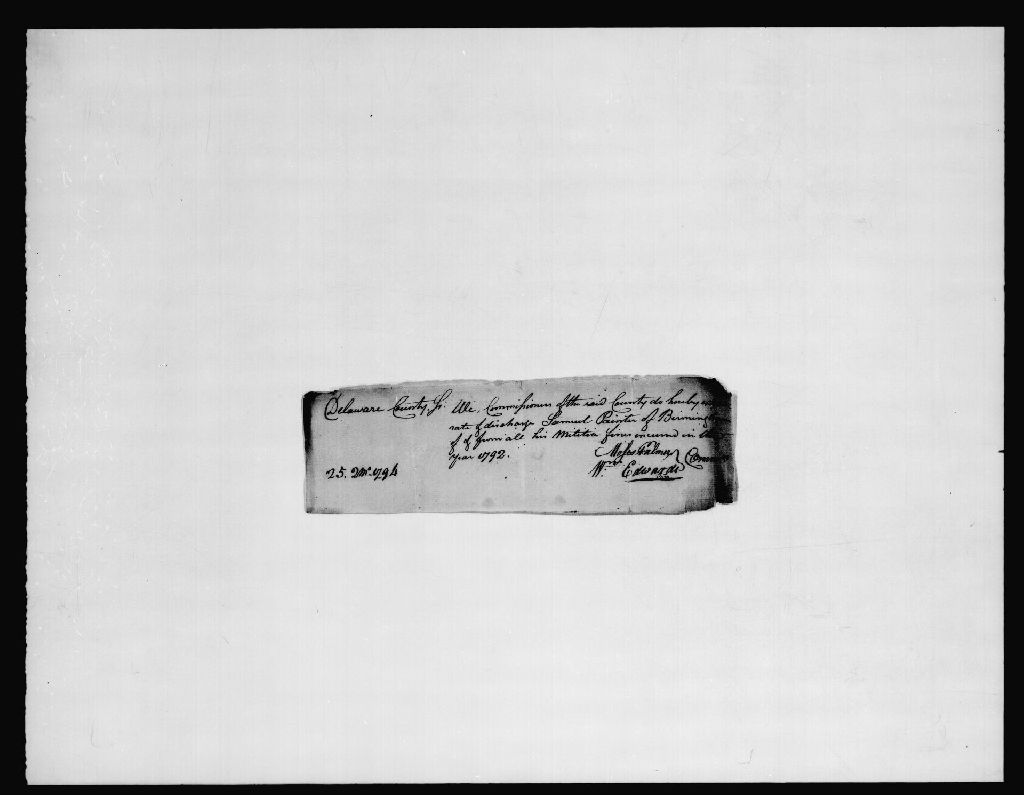 Delaware County Ss. We, Commissioners of the said County do hereby
rate & discharge Samuel Painter of Birming
from all his Militia fines incurred in
Year 1792.
Moses Palmer
25. 2m. 1794 Wm. Edwards